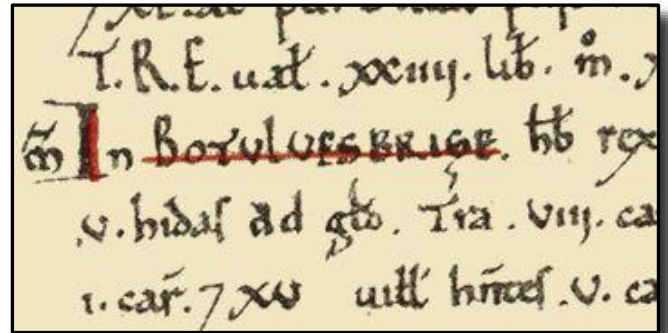 T.R.E. ual̃. xxiiij. lib̃. m̊.
m̃ In BOTULVESBRIGE. hb̃ rex
v. hidaſ ad gld̃. Tr̃a. viij. ca
i. car̃. 7 xv uiłł hñteſ. v. ca